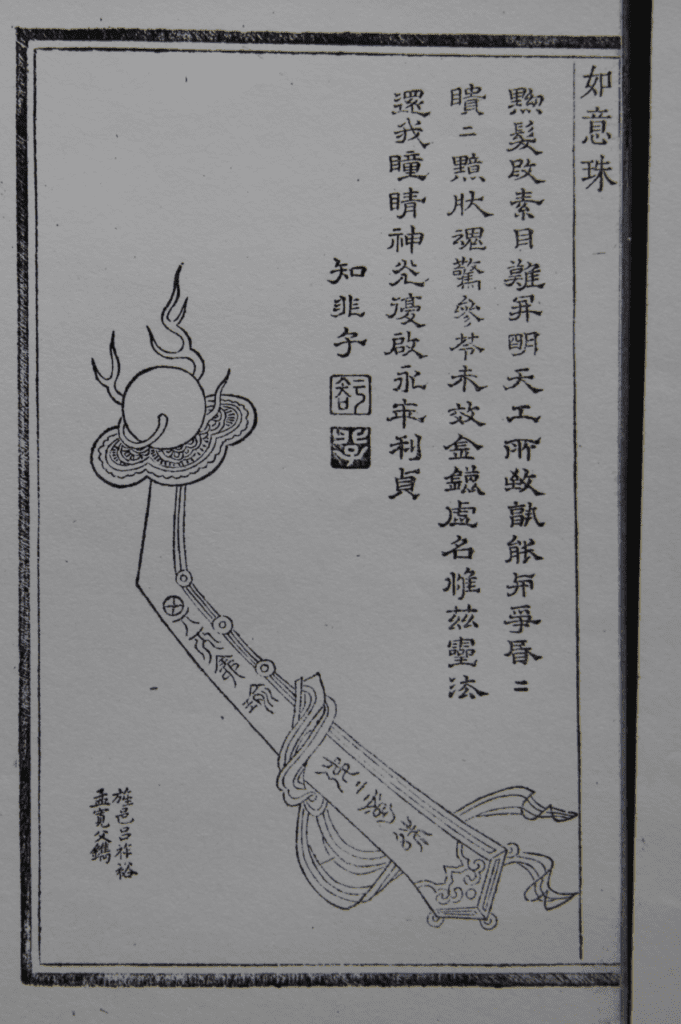 如意珠
黝髮改素目難昇明天工所致孰能與爭昏二
瞶二黯肰魂驚參苓未效金鎞虛名惟茲靈法
還我瞳睛神光復啟永年利貞
知非子
旌邑呂裕
孟寬父鐫